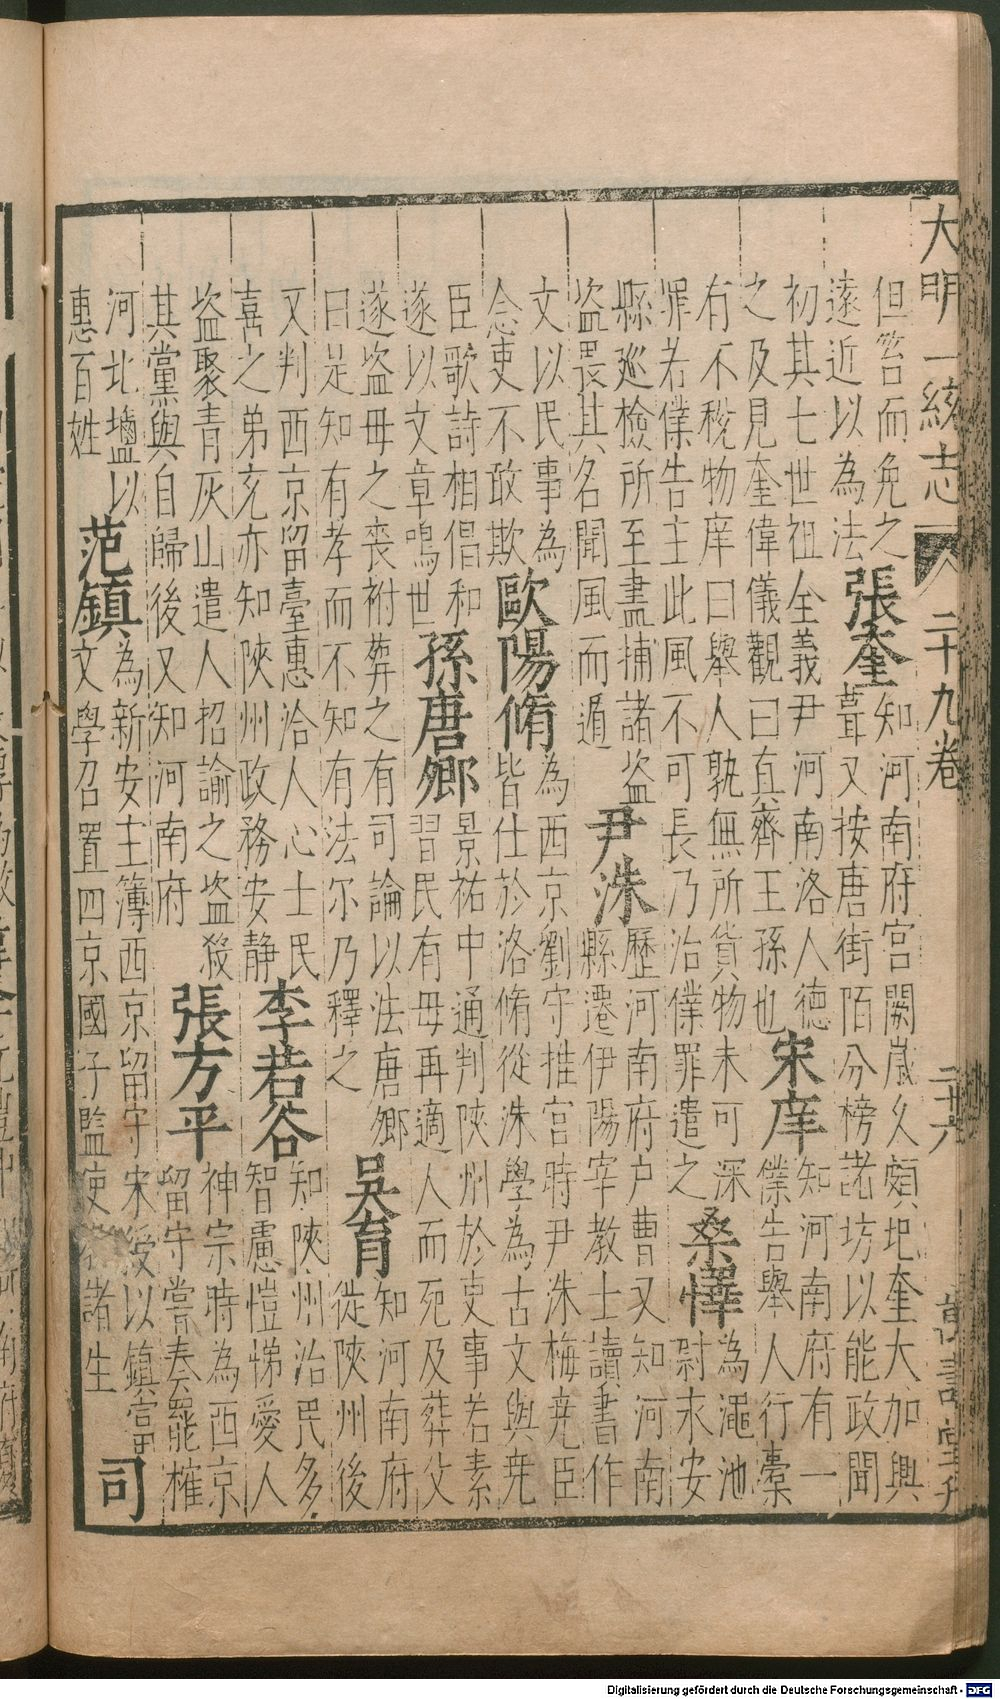 大明一統志 二十九卷 二十六 萬壽堂刊
但笞而免之
遠近以為法
張奎
知河南府宮闕歲久頗圯奎大加興
葺又按唐街陌分榜諸坊以能政聞
初其七世祖全義尹河南洛人德
之及見奎偉儀觀曰真齊王孫也
宋庠
知河南府有一
僕告舉人行橐
有不稅物庠曰舉人孰無所貨物未可深
罪若僕告主此風不可長乃治僕罪遣之
桑懌
為澠池
尉末安
縣巡檢所至盡捕諸盜
盜畏其名聞風而遁
尹洙
歷河南府戶曹又知河南
縣遷伊陽宰教士讀書作
文以民事為
念吏不敢欺
歐陽脩
為西京劉守推官時尹洙梅堯臣
皆仕於洛脩從洙學為古文與堯
臣歌詩相倡和
遂以文章鳴世
孫唐鄉
景祐中通判陝州於吏事若素
習民有母再適人而死及葬父
遂盜母之喪祔葬之有司論以法唐鄉
曰是知有孝而不知有法尔乃釋之
吳育
知河南府
徙陝州後
又判西京留臺惠洽人心士民
喜之弟充亦知陝州政務安靜
李若谷
知陝州治民多
智慮愷悌愛人
盜聚青灰山遣人招諭之盜殺
其黨與自歸後又知河南府
張方平
神宗時為西京
留守嘗奏罷榷
河北鹽以
惠百姓
范鎮
為新安主簿西京留守宋綬以鎮富
文學召置四京國子監使諸生
司
Digitalisierung gefördert durch die Deutsche Forschungsgemeinschaft - DFG